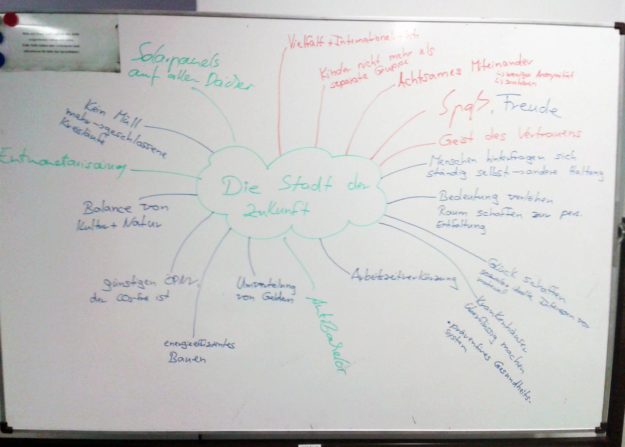 Die Stadt der
Zukunft
Solarpanels
auf allen Dächer
Vielfalt + Internationalität
Kinder nicht mehr als
separate Gruppe
Achtsames Miteinander
Spaß, Freude
Geist des Vertrauens
Menschen hinterfragen sich
ständig selbst → andere Haltung
Bedeutung verleihen
Raum schaffen zur pers.
Entfaltung
Glück schaffen
Krankenhäuser
überflüssig machen
• präventives Gesundheits-
system
Arbeitszeitverkürzung
AntiBachelor
Umverteilung
von Geldern
energieeffizientes
Bauen
günstigen ÖPNV,
der CO2-frei ist
Balance von
Kultur + Natur
Entmonetarisierung
Kein Müll
mehr → geschlossene
Kreisläufe